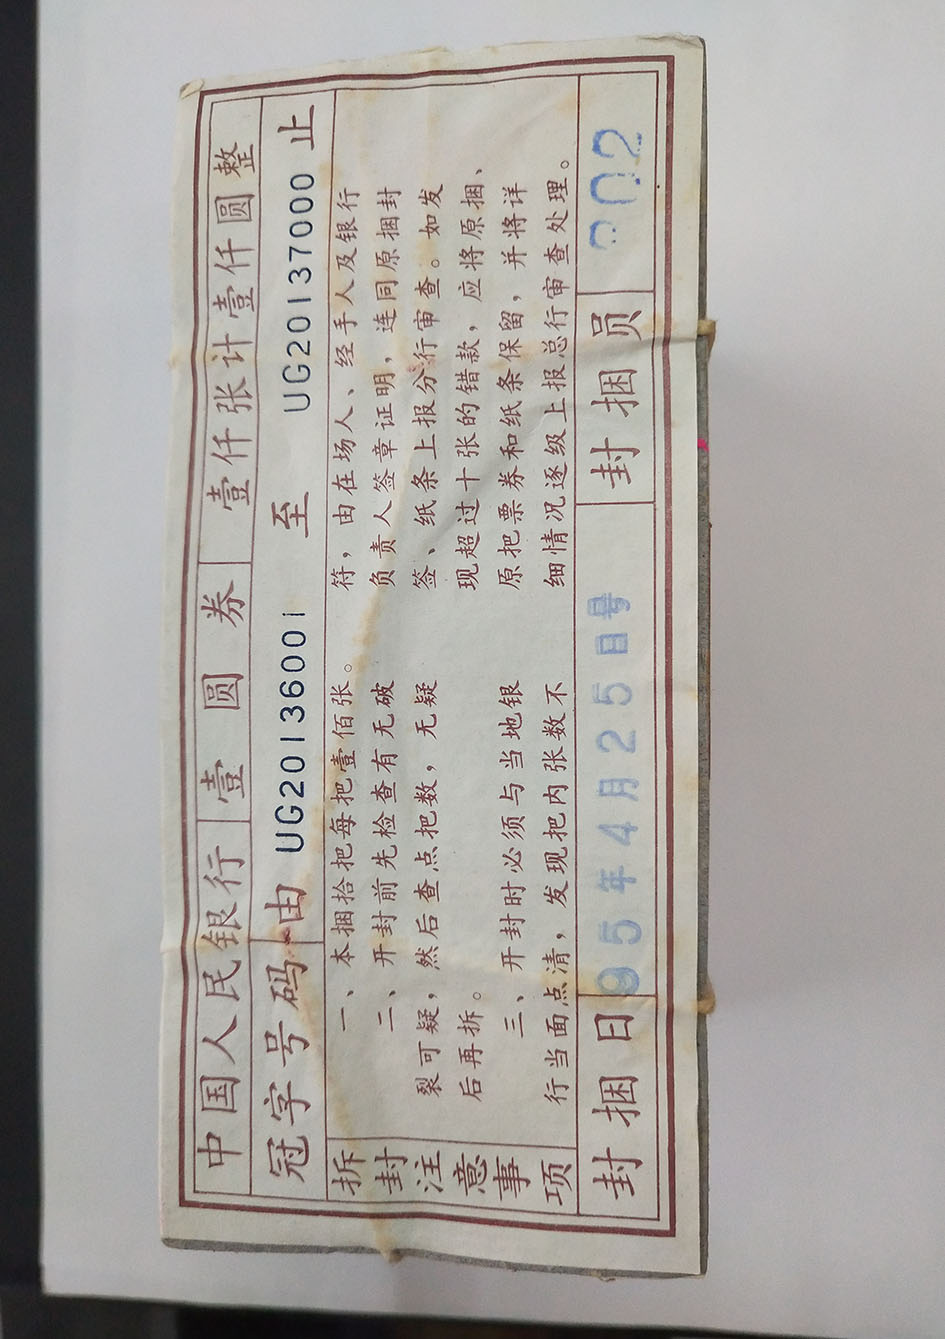 中国人民银行 壹圆券 壹仟张计壹仟圆整
冠字号码 由 UG20136001 至 UG20137000 止
拆封注意事项
一、本捆拾把每把壹佰张。
二、开封前先检查有无破
裂可疑，然后查点把数，无疑
后再拆。
三、开封时必须与当地银
行当面点清，发现把内张数不
符，由在场人、经手人及银行
负责人签章证明，连同原捆封
签、纸条上报分行审查。如发
现超过十张的错款，应将原捆、
原把票券和纸条保留，并将详
细情况逐级上报总行审查处理。
封捆日 95年4月25日号 封捆员 02